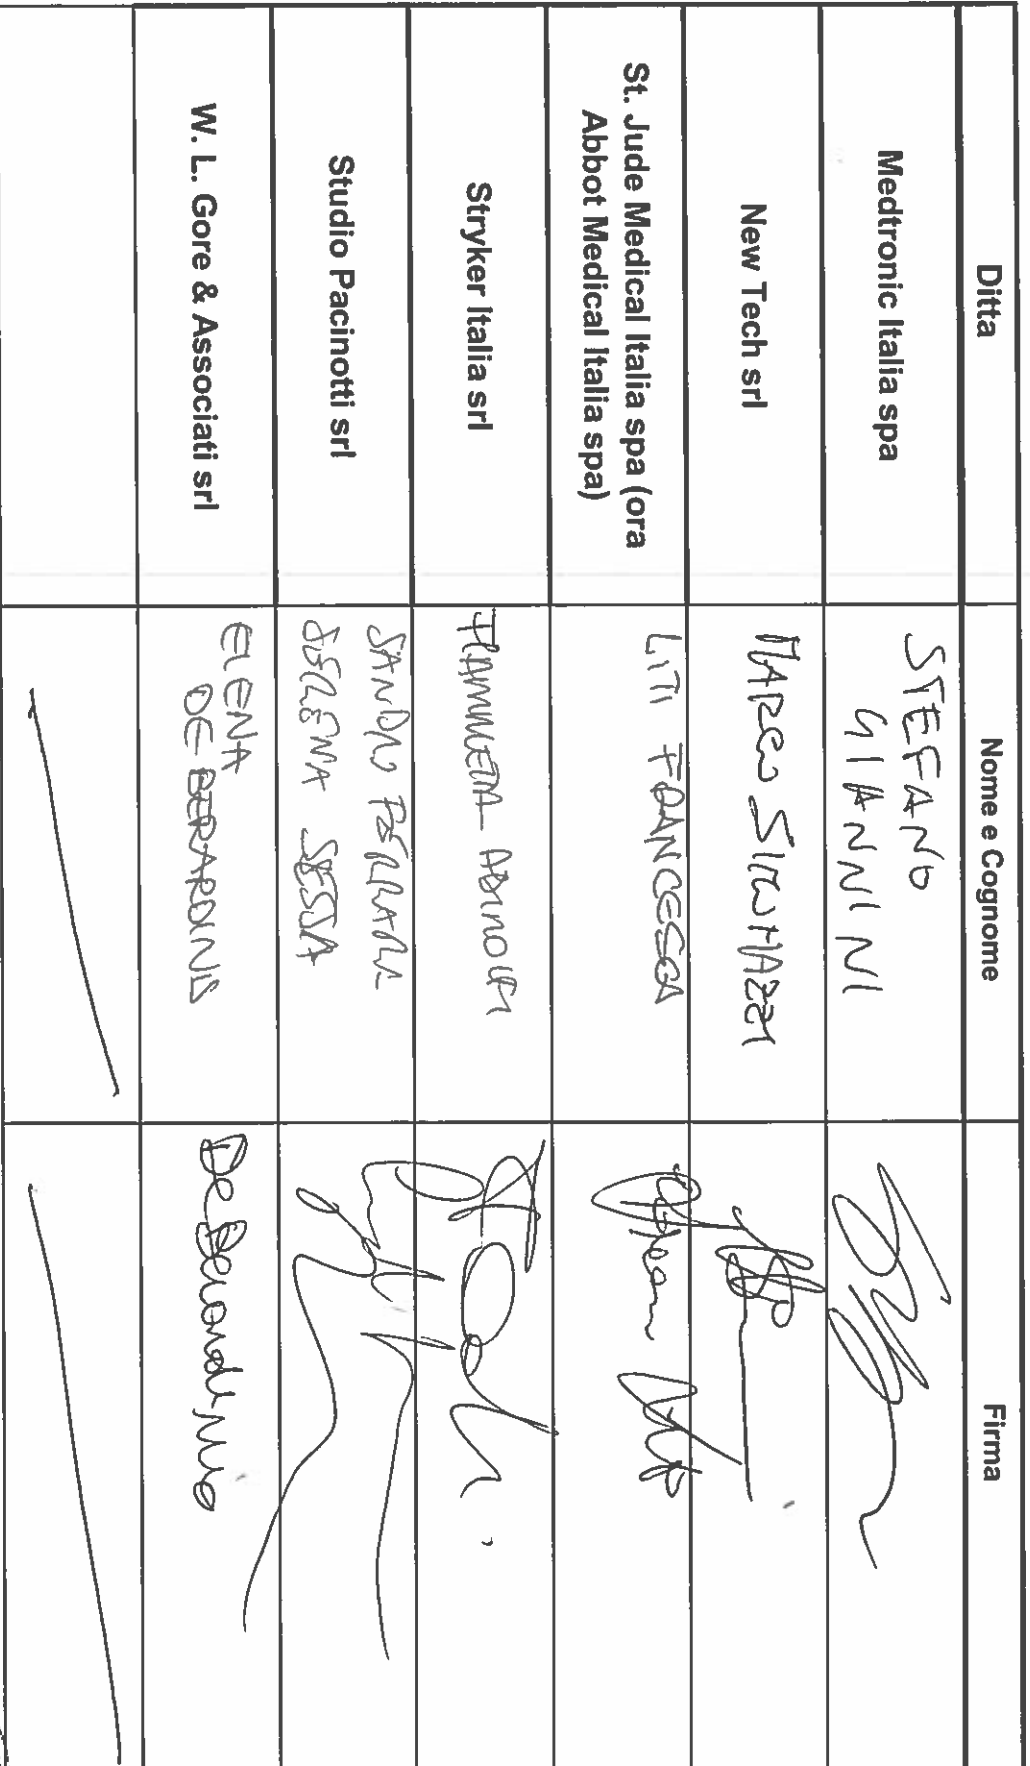 Ditta Nome e Cognome Firma
Medtronic Italia spa STEFANO
GIANNINI
New Tech srl MARCO
St. Jude Medical Italia spa (ora
Abbot Medical Italia spa) LITI FRANCESCA
Stryker Italia srl FIAMMETTA
Studio Pacinotti srl SANDRO FERRARI
SERENA SESSA
W. L. Gore & Associati srl ELENA
DE BERARDINIS De Berardinis